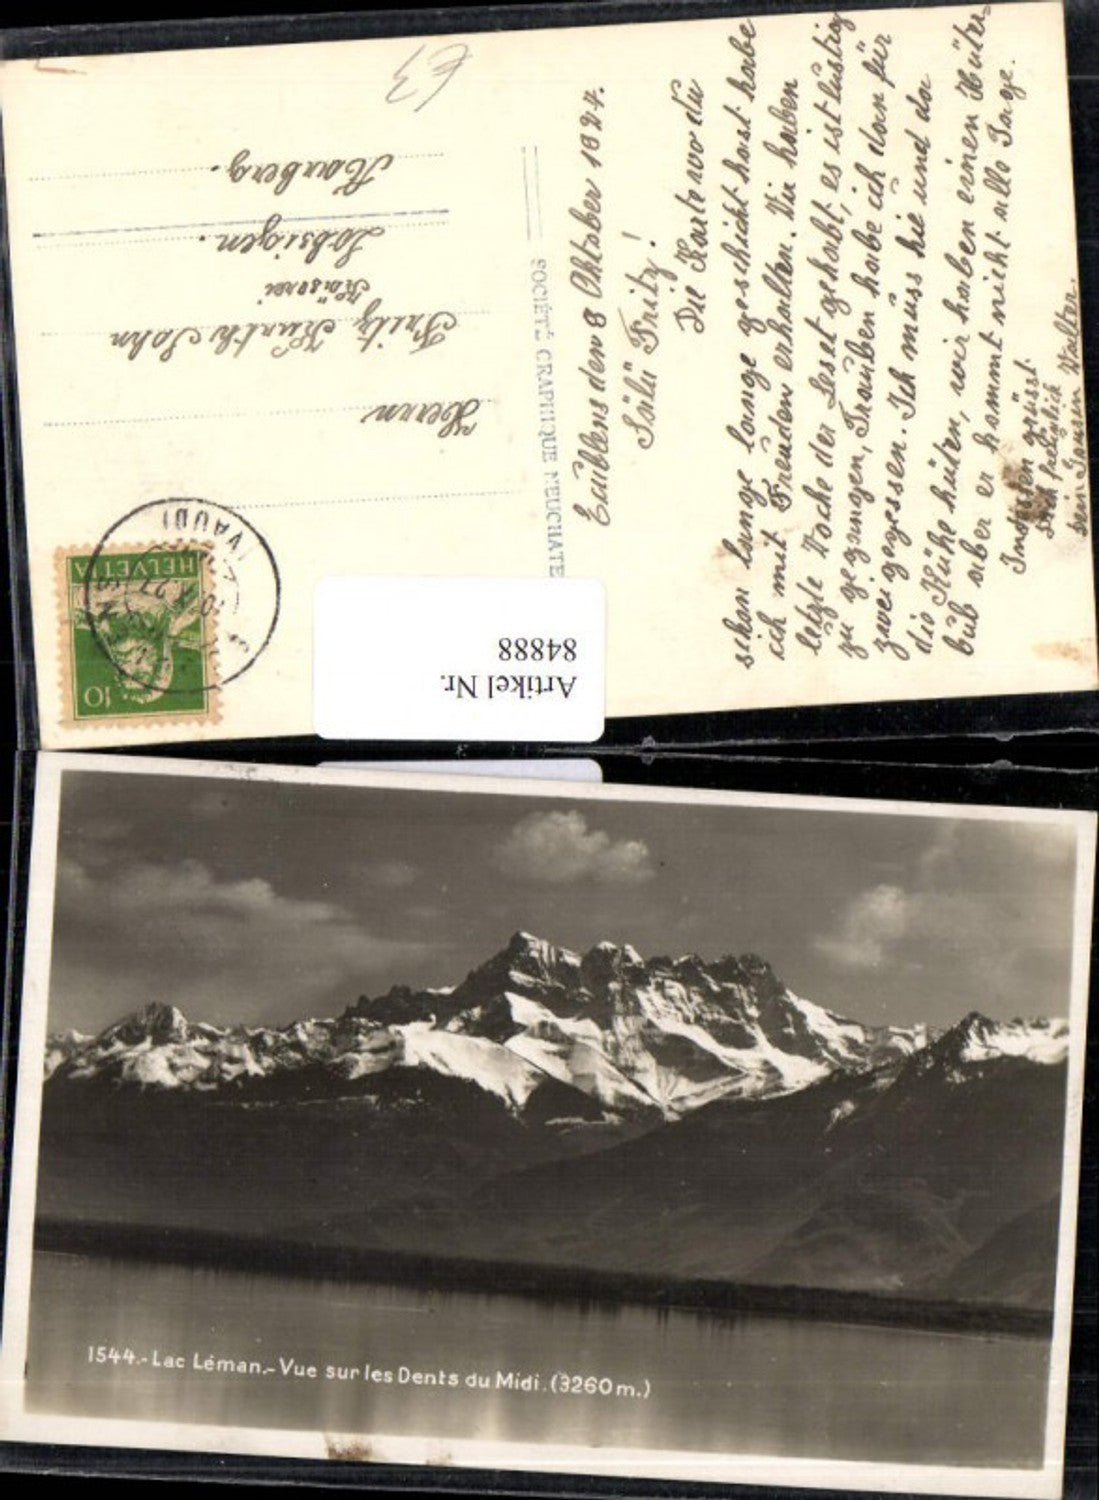 Eciiblens den 8 Oktober 1927.
Sälü Fritz!
Die Karte wo du
schon lange lange geschickt hast habe
ich mit Freuden erhalten. Wir haben
letzte Woche der Leset gehabt, es ist lustig
zu gegangen, Trauben habe ich dan für
zwei gegessen. Ich muss hie und da
die Kühe hüten, wir haben einen Hüter-
bub aber er kommt nicht alle Tage.
Indessen grüsst
dich freundlich
dein Walter.
SOCIÉTÉ GRAPHIQUE NEUCHATE
Herrn
Fritz Künth Sohn
Käserei
Lobsigen.
Aarberg.
€3
HELVETIA
10
(VAUD)
Artikel Nr.
84888
1544.- Lac Léman.- Vue sur les Dents du Midi. (3260 m.)